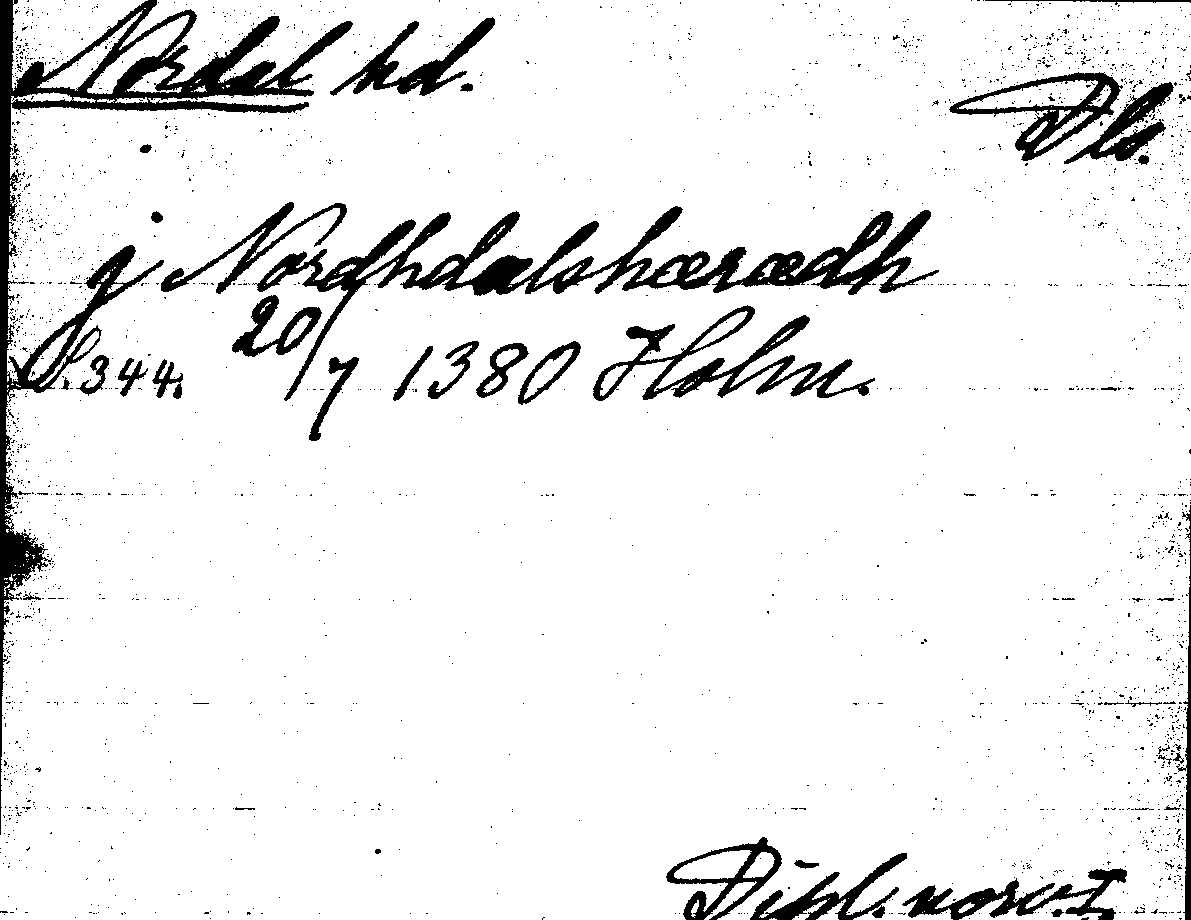 Nordal hd.
Dls.
j Nordhdalshærædh
S. 344. 20/7 1380 Holm.
Dipl. norv. I.